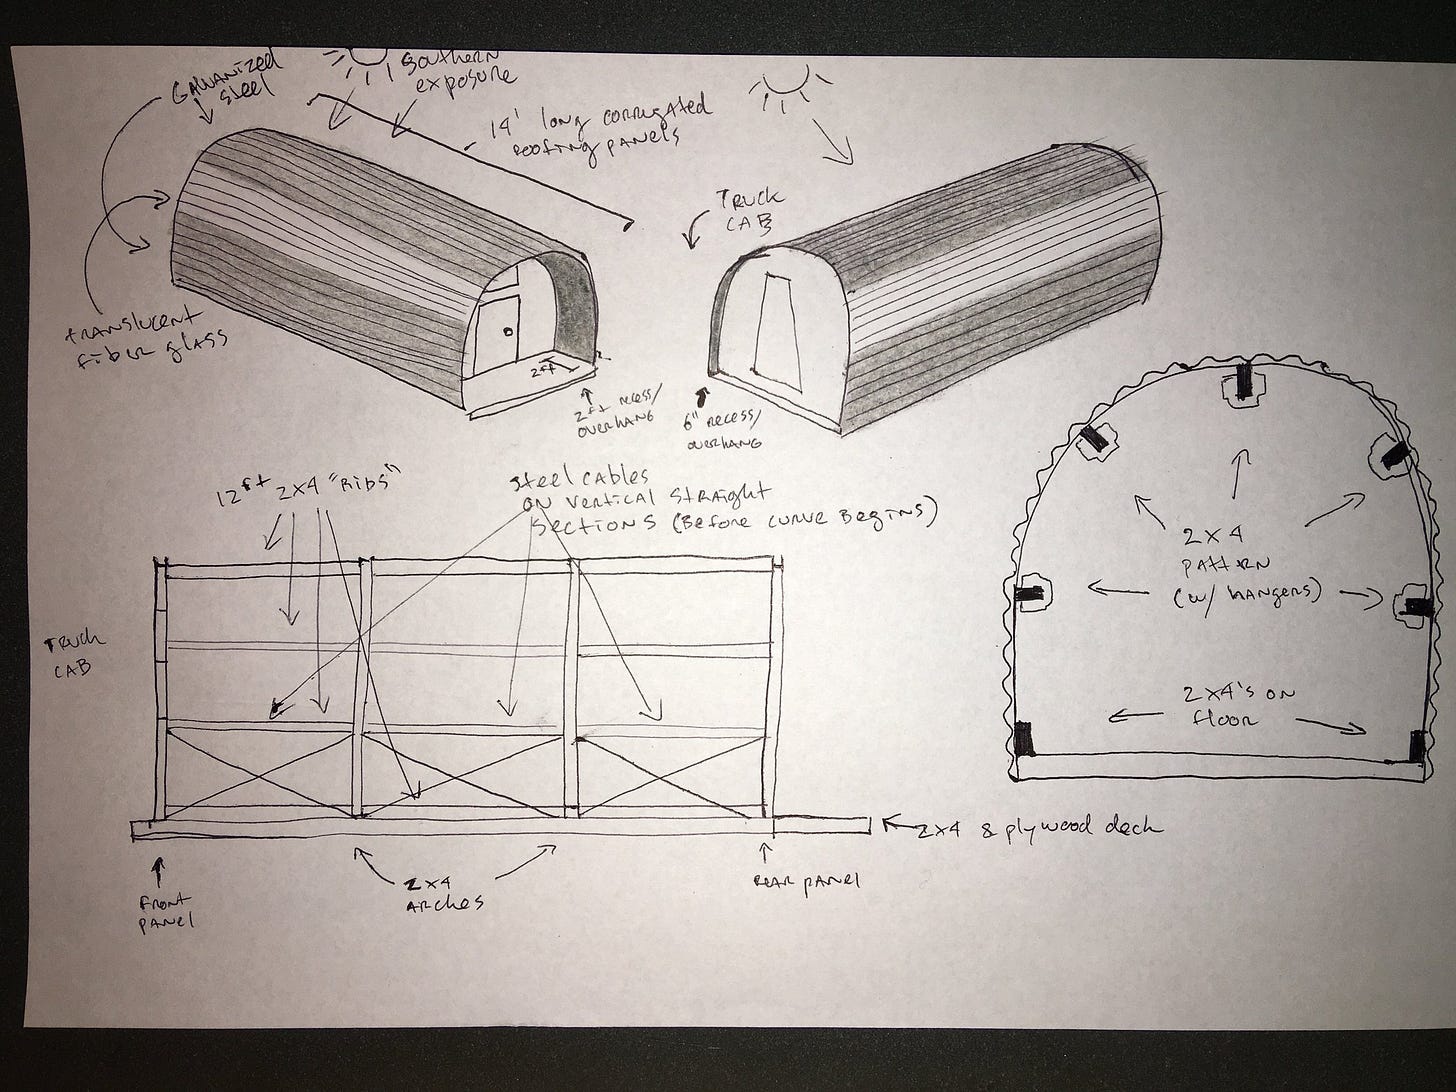 Galvanized
Steel
Southern
exposure
14' long corrugated
roofing panels
Truck
CAB
translucent
fiber glass
2ft
2ft recess/
overhang
6" recess/
overhang
12ft 2x4 "Ribs"
Steel cables
on vertical straight
sections (Before curve Begins)
Truck
CAB
2x4
pattern
(w/ hangers)
2x4's on
floor
2x4 & plywood deck
Front
panel
2x4
Arches
Rear panel